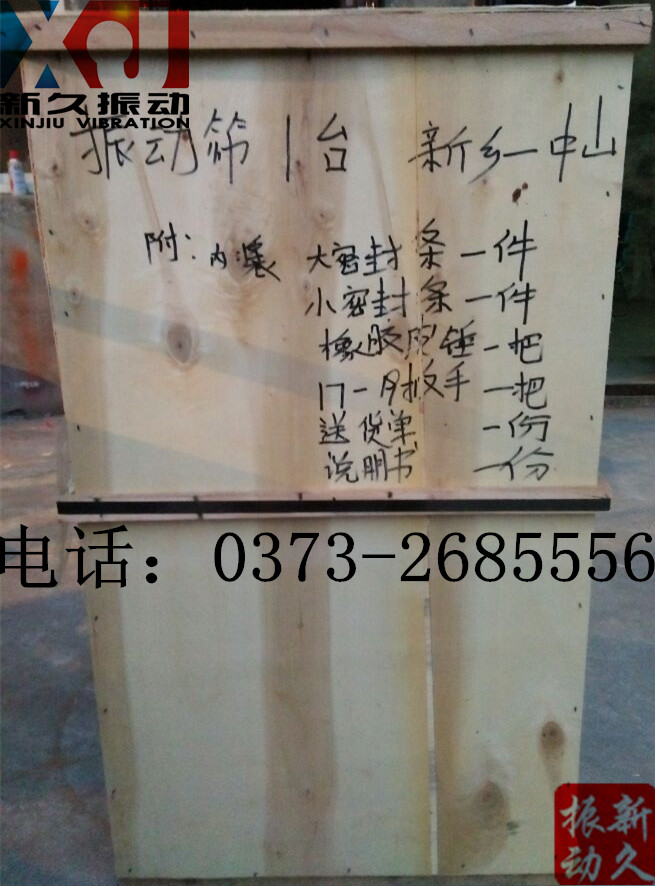 XJ
新久振动
XINJIU VIBRATION
振动筛1台 新乡—中山
附:内装 大密封条一件
小密封条一件
橡胶皮锤一把
17—19扳手一把
送货单一份
说明书一份
电话：0373-2685556
新久
振动